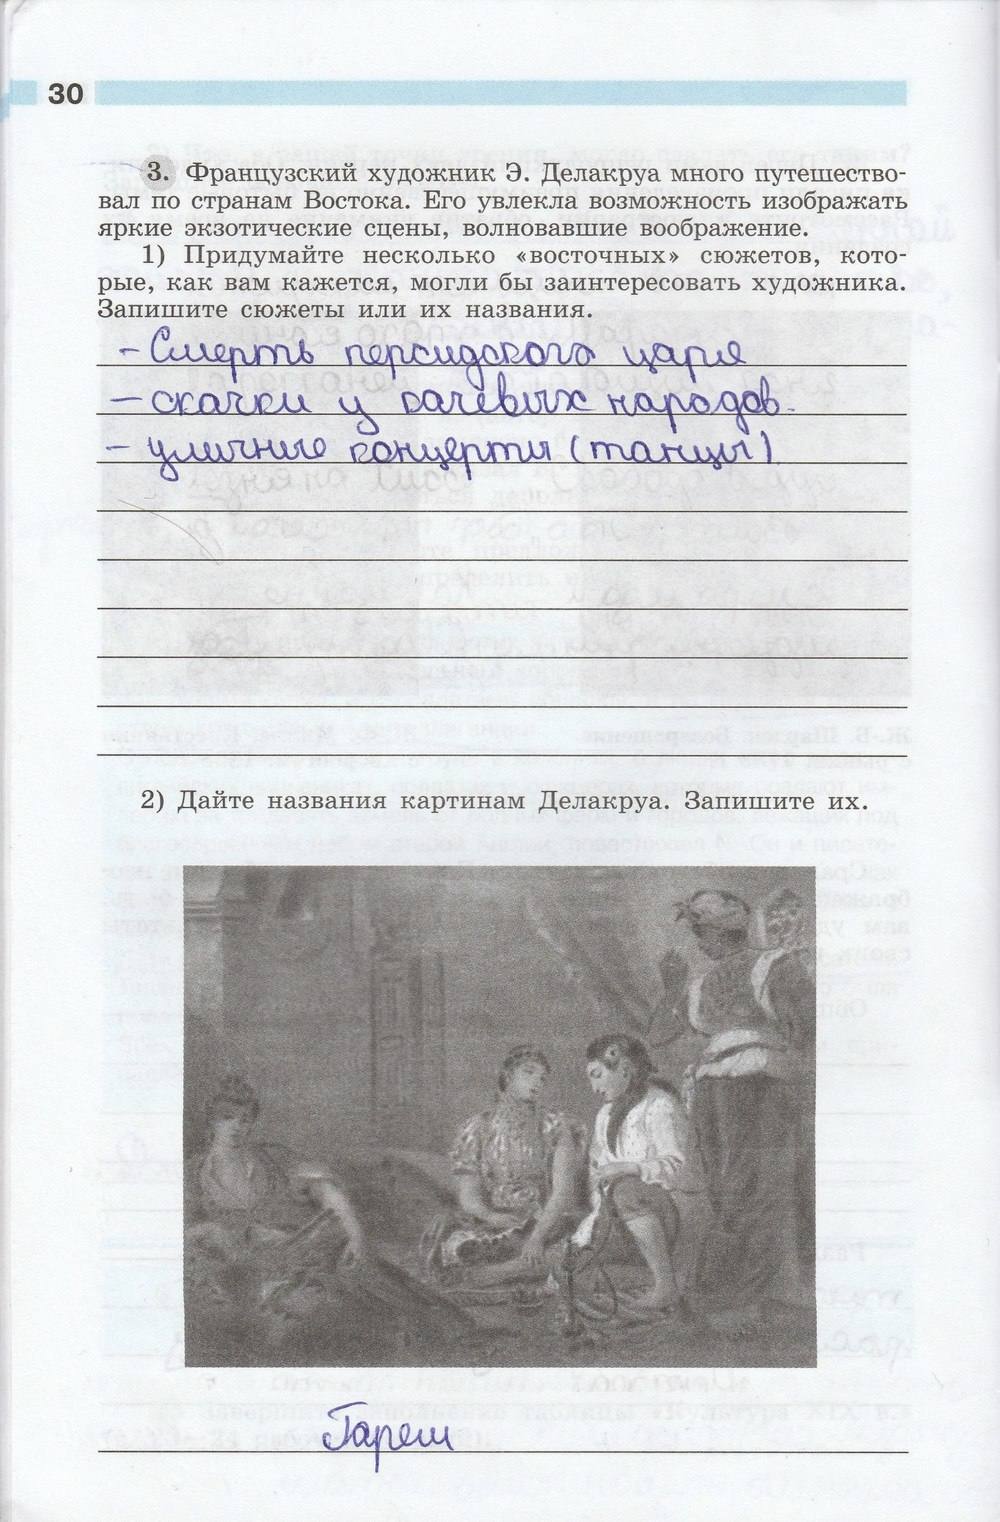 30
3. Французский художник Э. Делакруа много путешество-
вал по странам Востока. Его увлекла возможность изображать
яркие экзотические сцены, волновавшие воображение.
1) Придумайте несколько «восточных» сюжетов, кото-
рые, как вам кажется, могли бы заинтересовать художника.
Запишите сюжеты или их названия.
- Смерть персидского царя
- скачки у качевых народов.
- уличные концерты (танцы)
2) Дайте названия картинам Делакруа. Запишите их.
Гарем